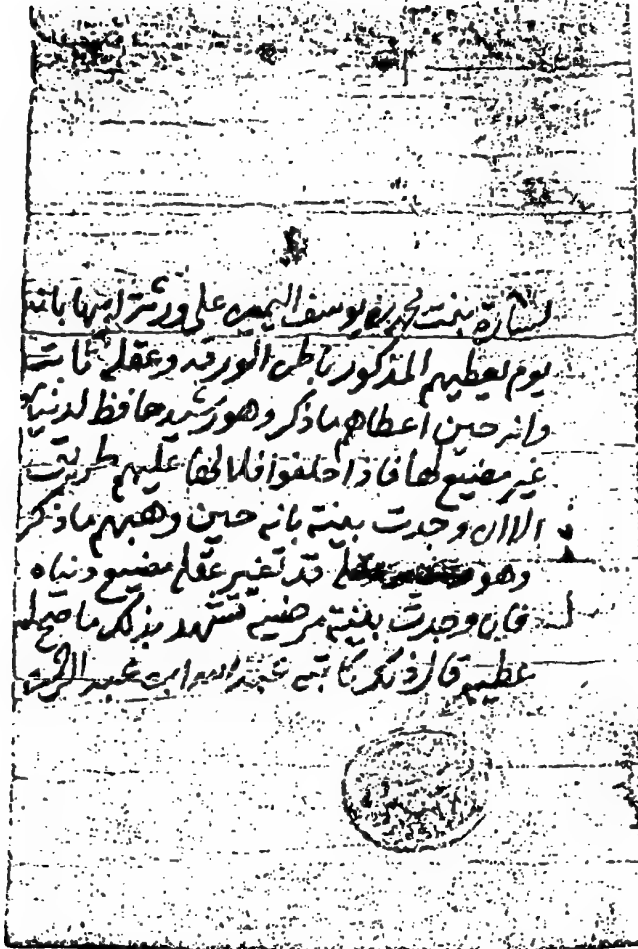 لسارة بنت محمد بن يوسف اليمين على ورثة ابيها بانه
يوم يعطيهم المذكور باطن الورقه وعقله ثابت
وانه حين اعطاهم ما ذكر وهو رشيد حافظ لدنياه
غير مضيع لها فاذا حلفوا فلا لها عليهم طريقت
الا ان وجدت بينة بانه حين وهبهم ما ذكر
وهو قد تغير عقله مضيع دنياه
فان وجدت بينة مرضية تشهد بذلك ما صح لهم
عطيه قال ذلك كاتبه عبد الله ابن عبد